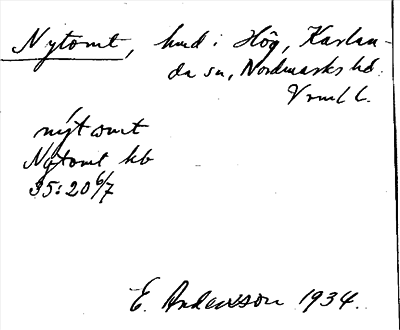 Nytomt, hmd i Hög, Karlan-
da sn, Nordmarks hd.
Vrml l.
nýt ɷmt
Nytomt kb
35:20 6/7
E. Andersson 1934.